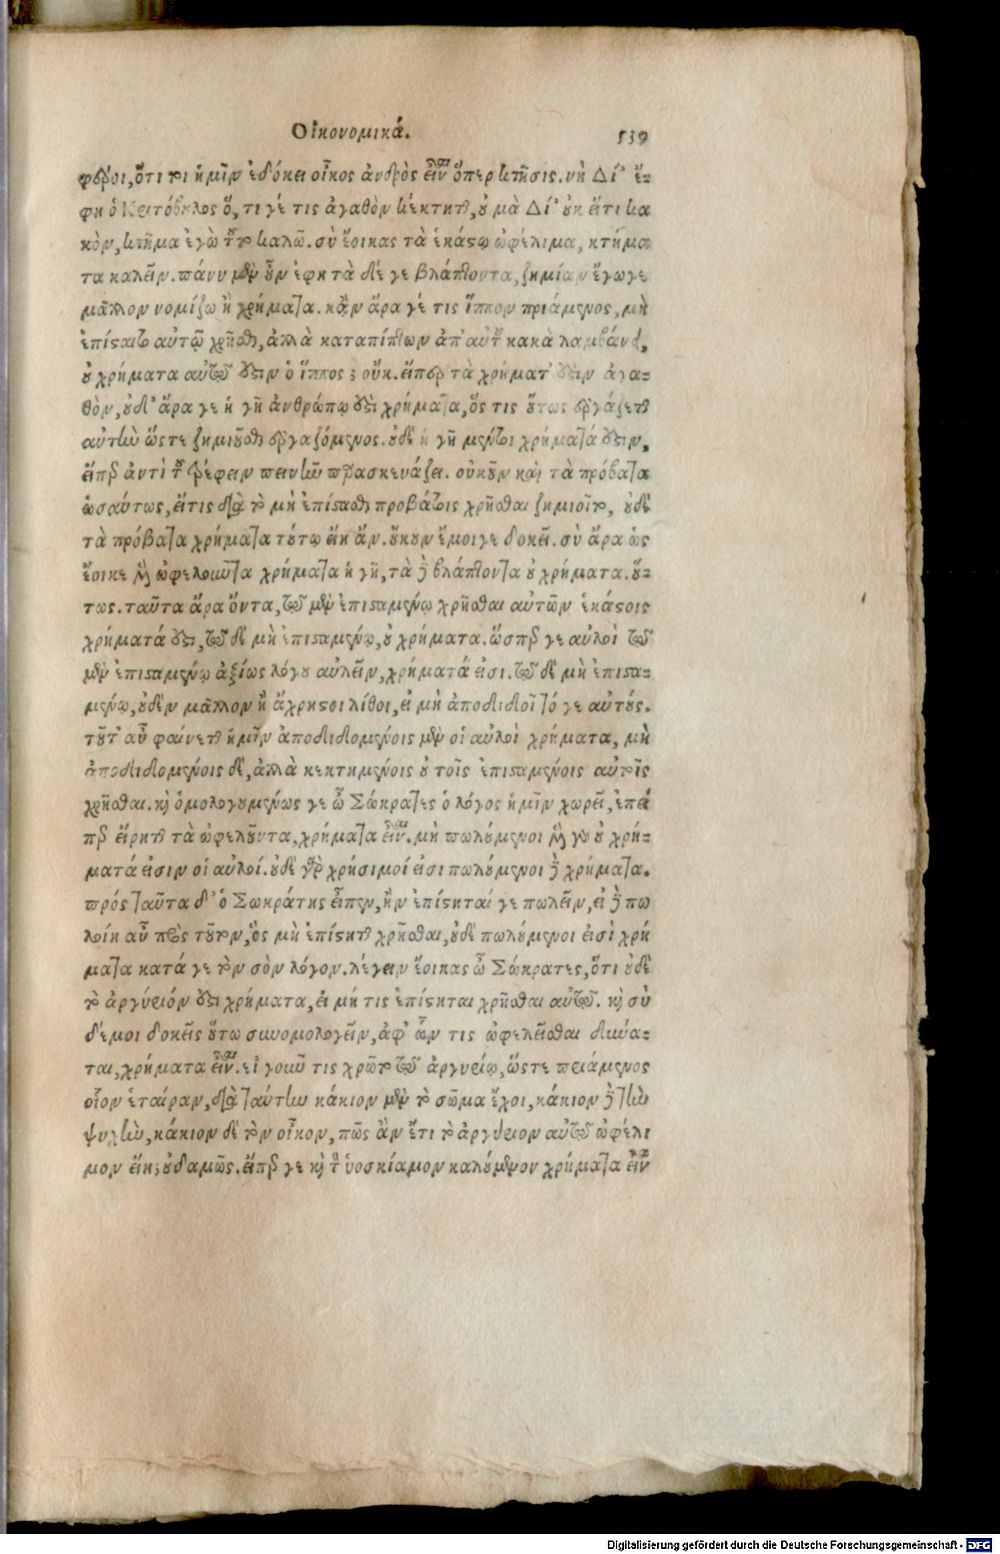 Οἰκονομικά. 539
φέροι, ὅτι τοι ἡμῖν ἐδόκει οἶκος ἀνδρὸς εἶναι ὅπερ κτῆσις. νὴ Δί' ἔ-
φη ὁ Κριτόβουλος ὅ, τι γέ τις ἀγαθὸν κέκτηται, οὐ μὰ Δί' οὐκ εἴτι κα
κὸν, κτῆμα ἐγὼ τοῦτο καλῶ. σὺ ἔοικας τὰ ἑκάστῳ ὠφέλιμα, κτήμα
τα καλεῖν. πάνυ μὲν οὖν ἔφη τὰ δέ γε βλάπτοντα, ζημίαν ἔγωγε
μᾶλλον νομίζω ἢ χρήματα. κἂν ἄρα γέ τις ἵππον πριάμενος, μὴ
ἐπίσταιτο αὐτῷ χρῆσθαι, ἀλλὰ καταπίπτων ἀπ' αὐτοῦ κακὰ λαμβάνῃ,
οὐ χρήματα αὐτῷ ἐστιν ὁ ἵππος; οὔκ. εἴπερ τὰ χρήματ' ἐστὶν ἀγα-
θὸν, οὐδ' ἄρα γε ἡ γῆ ἀνθρώπῳ ἐστὶ χρήματα, ὅς τις οὕτως ἐργάζεται
αὐτὴν ὥστε ζημιοῦσθαι ἐργαζόμενος. οὐδὲ ἡ γῆ μέντοι χρήματά ἐστιν,
εἴπερ ἀντὶ τοῦ τρέφειν πεινῆν παρασκευάζει. οὐκοῦν καὶ τὰ πρόβατα
ὡσαύτως, εἴτις διὰ τὸ μὴ ἐπίστασθαι προβάτοις χρῆσθαι ζημιοῖτο, οὐδὲ
τὰ πρόβατα χρήματα τούτῳ εἴη ἄν. οὔκουν ἔμοιγε δοκεῖ. σὺ ἄρα ὡς
ἔοικε τὰ μὲν ὠφελοῦντα χρήματα ἡγῇ, τὰ δὲ βλάπτοντα οὐ χρήματα. οὕ-
τως. ταῦτα ἄρα ὄντα, τῷ μὲν ἐπισταμένῳ χρῆσθαι αὐτῶν ἑκάστοις
χρήματά ἐστι, τῷ δὲ μὴ ἐπισταμένῳ, οὐ χρήματα. ὥσπερ γε αὐλοὶ τῷ
μὲν ἐπισταμένῳ ἀξίως λόγου αὐλεῖν, χρήματά εἰσι. τῷ δὲ μὴ ἐπιστα-
μένῳ, οὐδὲν μᾶλλον ἢ ἄχρηστοι λίθοι, εἰ μὴ ἀποδιδοῖτό γε αὐτούς.
τοῦτ' αὖ φαίνεται ἡμῖν ἀποδιδομένοις μὲν οἱ αὐλοὶ χρήματα, μὴ
ἀποδιδομένοις δὲ, ἀλλὰ κεκτημένοις οὐ τοῖς ἐπισταμένοις αὐτοῖς
χρῆσθαι. καὶ ὁμολογουμένως γε ὦ Σώκρατες ὁ λόγος ἡμῖν χωρεῖ, ἐπεί
περ εἴρηται τὰ ὠφελοῦντα, χρήματα εἶναι. μὴ πωλούμενοι μὲν γὰρ οὐ χρή-
ματά εἰσιν οἱ αὐλοί. οὐδὲ γὰρ χρήσιμοί εἰσι πωλούμενοι δὲ χρήματα.
πρός ταῦτα δ' ὁ Σωκράτης εἶπεν, ἢν ἐπίστηταί γε πωλεῖν, εἰ δὲ πω
λοίη αὖ πρὸς τοῦτον, ὃς μὴ ἐπίσταιτο χρῆσθαι, οὐδὲ πωλούμενοι εἰσὶ χρή
ματα κατά γε τὸν σὸν λόγον. λέγειν ἔοικας ὦ Σώκρατες, ὅτι οὐδὲ
τὸ ἀργύριόν ἐστι χρήματα, εἰ μή τις ἐπίσταιτο χρῆσθαι αὐτῷ. καὶ σὺ
δέ μοι δοκεῖς οὕτω συνομολογεῖν, ἀφ' ὧν τις ὠφελεῖσθαι δύνα-
ται, χρήματα εἶναι. εἰ γοῦν τις χρῷτο τῷ ἀργυρίῳ, ὥστε πριάμενος
οἷον ἑταίραν, διὰ ταύτην κάκιον μὲν τὸ σῶμα ἔχοι, κάκιον δὲ τὴν
ψυχὴν, κάκιον δὲ τὸν οἶκον, πῶς ἂν ἔτι τὸ ἀργύριον αὐτῷ ὠφέλι
μον εἴη; οὐδαμῶς. εἴπερ γε καὶ τὸν ὑοσκίαμον καλούμενον χρήματα εἶναι
Digitalisierung gefördert durch die Deutsche Forschungsgemeinschaft - DFG